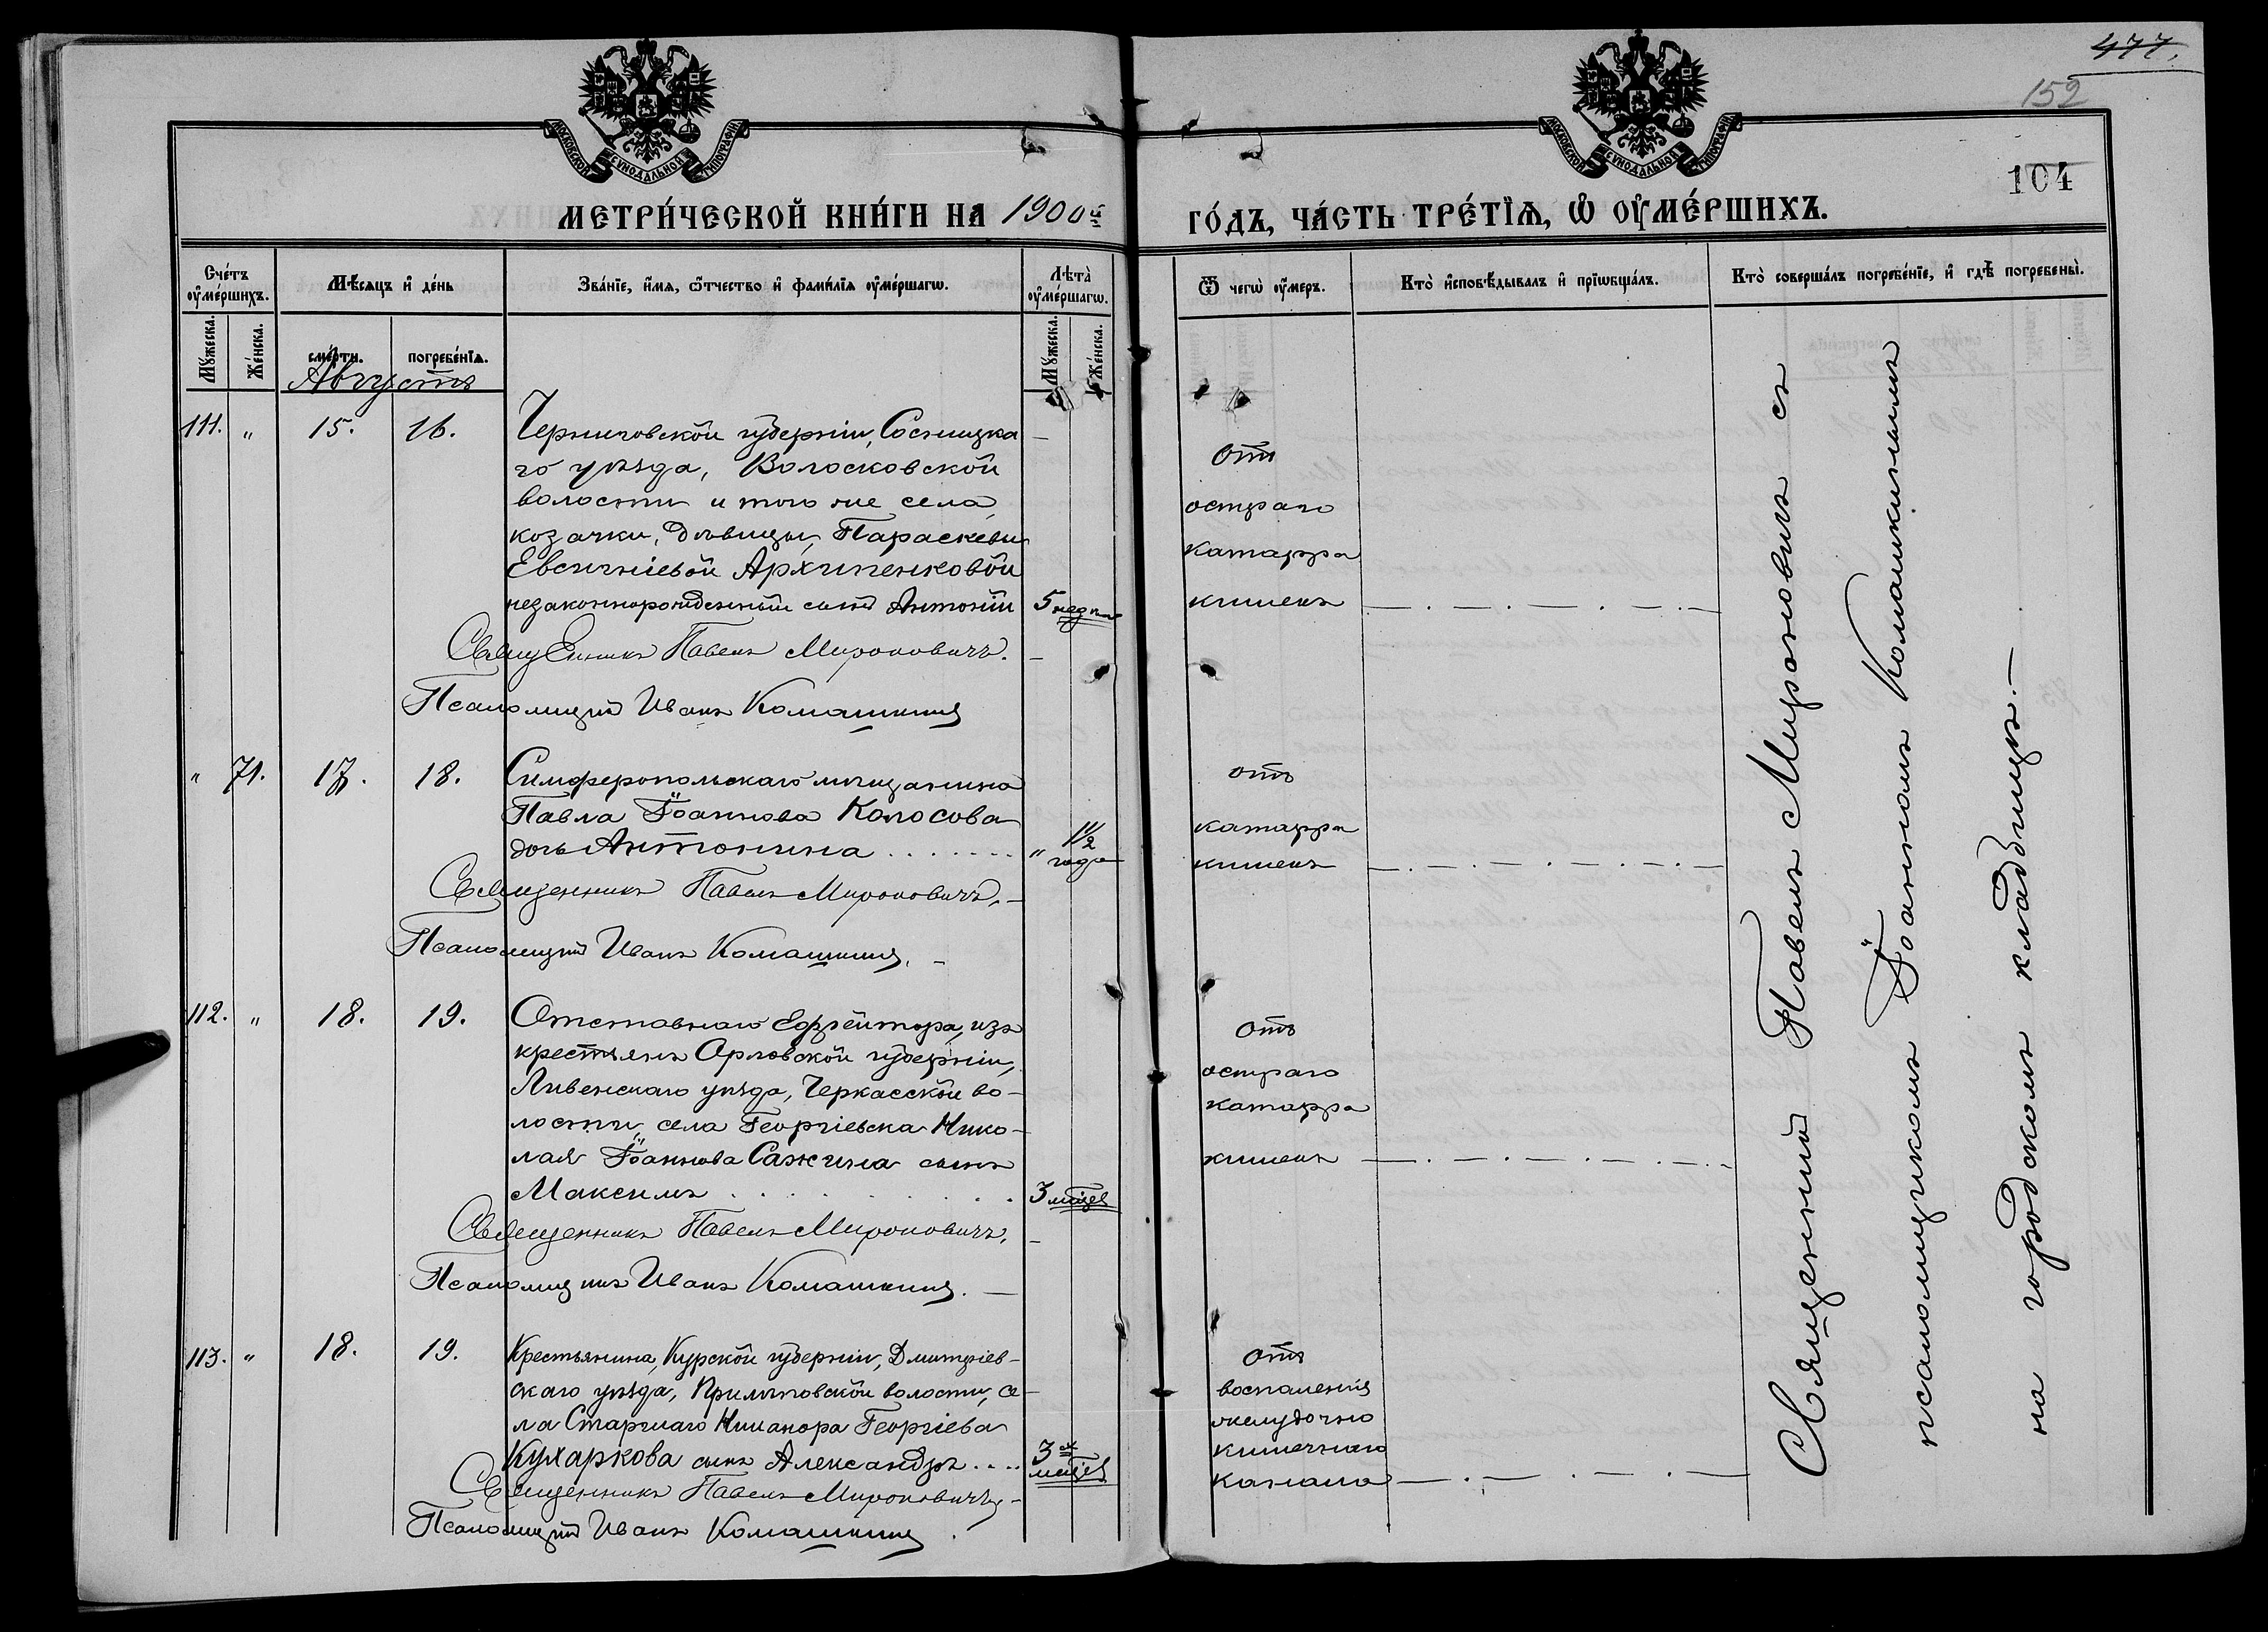 477.
152
104
МОСКОВСКОЙ СУНОДАЛЬНОЙ ТИПОГРАФІИ
МОСКОВСКОЙ СУНОДАЛЬНОЙ ТИПОГРАФІИ
МЕТРИ́ЧЕСКОЙ КНИ́ГИ НА 1900й
ГО́ДЪ, ЧА́СТЬ ТРЕ́ТЇѦ, Ѡ ОУМЕ́РШИХЪ.
Сче́тъ оу҆ме́ршихъ.
Мѣ́сяцъ и҆ де́нь
Зва́нїе, и҆́мѧ, ѻ҆́тчество и҆ фами́лїѧ оу҆ме́ршагѡ.
Лѣта̀ оу҆ме́ршагѡ.
Ѿ чегѡ̀ оу҆́меръ.
Кто̀ и҆сповѣ́дывалъ и҆ прїѡбща́лъ.
Кто̀ соверша́лъ погребе́нїе, и҆ гдѣ̀ погребены̀.
Мꙋ́жеска.
Же́нска.
сме́рти.
погребе́нїѧ.
Мꙋ́жеска.
Же́нска.
Августъ
111. " 15. 16. Черниговской губерніи, Сосницка-
го уѣзда, Волосковской
волости и того же села,
козачки, дѣвицы, Параскевы
Евсигніевой Архипенковой
незаконнорожденный сынъ Антоній 5 недѣл
отъ
остраго
катарра
кишекъ
Священникъ Павелъ Мироновичъ.
Псаломщикъ Иванъ Комашкинъ
" 71. 17. 18. Симферопольскаго мѣщанина
Павла Іоаннова Колосова
дочь Антонина . . . . . . . " 1 1/2 года
отъ
катарра
кишекъ
Священникъ Павелъ Мироновичъ.
Псаломщикъ Иванъ Комашкинъ.
112. " 18. 19. Отставнаго Ефрейтора, изъ
крестьянъ Орловской губерніи,
Ливенскаго уѣзда, Черкасской во-
лости, села Георгіевска Нико-
лая Іоаннова Сажина сынъ
Максимъ . . . . . . . 3 мѣсцев
отъ
остраго
катарра
кишекъ
Священникъ Павелъ Мироновичъ.
Псаломщикъ Иванъ Комашкинъ.
113. " 18. 19. Крестьянина, Курской губерніи, Дмитріев-
скаго уѣзда, волости, се-
ла Никанора Георгіева
Кухаркова сынъ Александръ . . . . 3х мѣсцев
отъ
воспаленія
желудочно
кишечнаго
канала
Священникъ Павелъ Мироновичъ.
Псаломщикъ Иванъ Комашкинъ.
Священникъ Павелъ Мироновичъ съ
псаломщикомъ Іоанномъ Комашкинымъ
на городскомъ кладбищѣ.